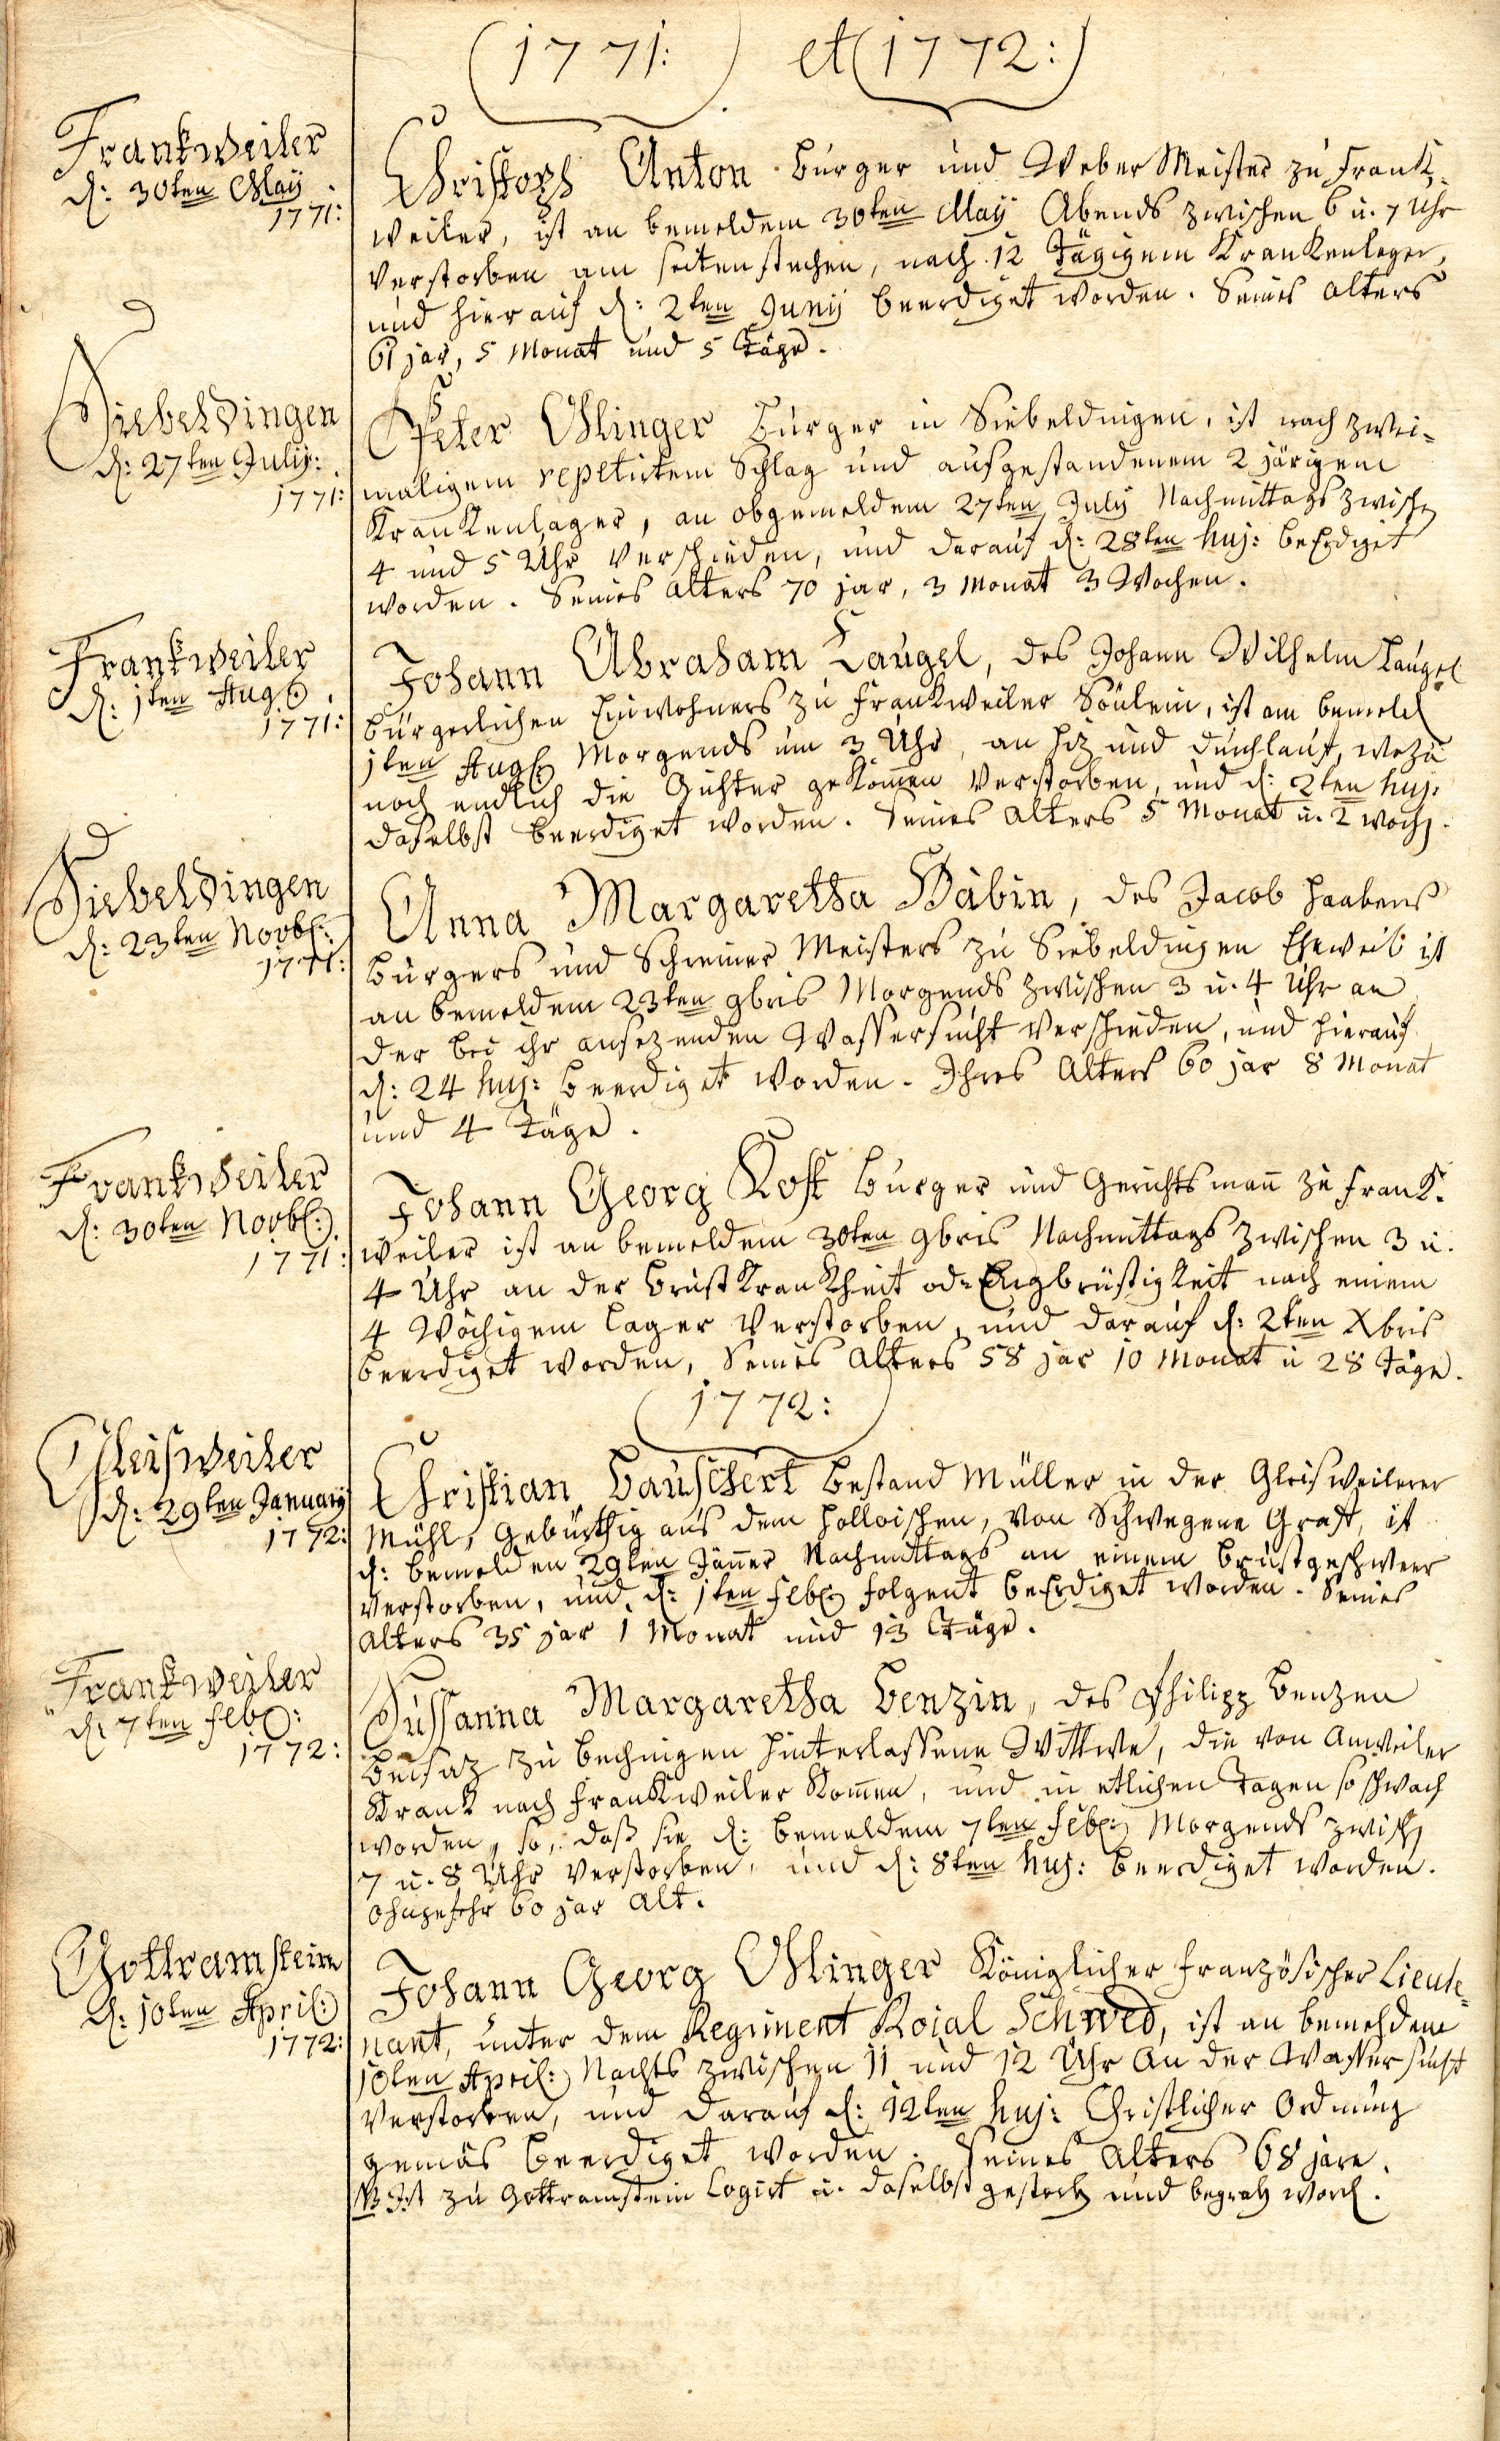 (1771:) et (1772:)
Frankweiler
d: 30ten May
1771:
Christoph Anton Burger und Weber Meister zu Frank-
weiler, ist an bemeldem 30ten May Abends zwischen 6 u. 7 Uhr
verstorben am seitenstechen, nach 12 Tägigem Krankenleger,
und hierauf d: 2ten Junij beerdiget worden. Seines alters
61 jar, 5 Monat und 5 Täge.
Siebeldingen
d: 27ten Julij:
1771:
Peter Öhlinger Burger in Siebeldingen, ist nach zwei-
maligem repetirtem Schlag und ausgestandenem 2 järigem
Krankenlager, an obgemeldem 27ten July Nachmittags zwisch
4 und 5 Uhr verschieden, und darauf d: 28ten huj: beErdiget
worden. Seines alters 70 jar, 3 Monat 3 Wochen.
Frankweiler
d: 1ten Aug
1771:
Johann Abraham Laugel, des Johann Wilhelm Laugel
bürgerlichen Einwohners zu Frankweiler Sönlein, ist am bemeld
1ten Aug Morgends um 3 Uhr, an Hiz und Durchlauf, wozu
noch endlich die Gichter gekommen verstorben, und d: 2ten huj:
daselbst beerdiget worden. Seines alters 5 Monat u. 2 woch.
Siebeldingen
d: 23ten Novb:
1771:
Anna Margaretha Häbin, des Jacob Haabens
Burgers und Schreiner Meisters zu Siebeldingen Eheweib ist
an bemeldem 23ten 9bris Morgends zwischen 3 u. 4 Uhr an
der bei ihr ansezenden Wassersucht verschieden, und hierauf
d: 24 huj: beerdiget worden. Ihres Alters 60 jar 8 Monat
und 4 Täge.
Frankweiler
d: 30ten Novb:
1771:
Johann Georg Kost Burger und Gerichtsmann zu Frank-
weiler ist an bemeldem 30ten 9bris Nachmittags zwischen 3 u.
4 Uhr an der Brust Krankheit od. Engbrüstigkeit nach einem
4 Wöchigem Lager verstorben, und darauf d: 2ten Xbris
beerdiget worden, Seines Alters 58 jar 10 Monat u 28 Täge.
(1772:)
Gleisweiler
d: 29ten January
1772:
Christian Bauschert Bestand Müller in der Gleisweilerer
Mühl, Gebürthig aus dem von Schwegene Graft, ist
d: bemelden 29ten Jänner Nachmittags an einem Brustgeschweer
verstorben, und d: 1ten Feb: folgent beErdiget worden. Seines
Alters 35 jar 1 Monat und 13 Täge.
Frankweiler
d: 7ten Feb:
1772:
Sussanna Margaretha Benzin, des Philipp Benzen
Beisaz zu Bechingen hinterlassene Wittwe, die von Anweiler
Krank nach Frankweiler Kommen, und in etlichen Tagen so schwach
worden, so, daß sie d: bemeldem 7ten Feb: Morgends zwisch
7 u. 8 Uhr verstorben, und d: 8ten huj: beerdiget worden.
ohngefehr 60 jar Alt.
Gottramstein
d: 10ten April:
1772:
Johann Georg Öhlinger Königlicher Französischer Lieute-
nant, unter dem Regiment Roial Schwed, ist an bemeldem
10ten April: Nachts zwischen 11 und 12 Uhr An der Wassersucht
verstorben, und darauf d: 12ten huj: Christlicher Ordnung
gemäs beerdiget worden. Seines Alters 68 jare.
NB Ist zu Gottramstein Logirt u. daselbst gestorb und begrab word.